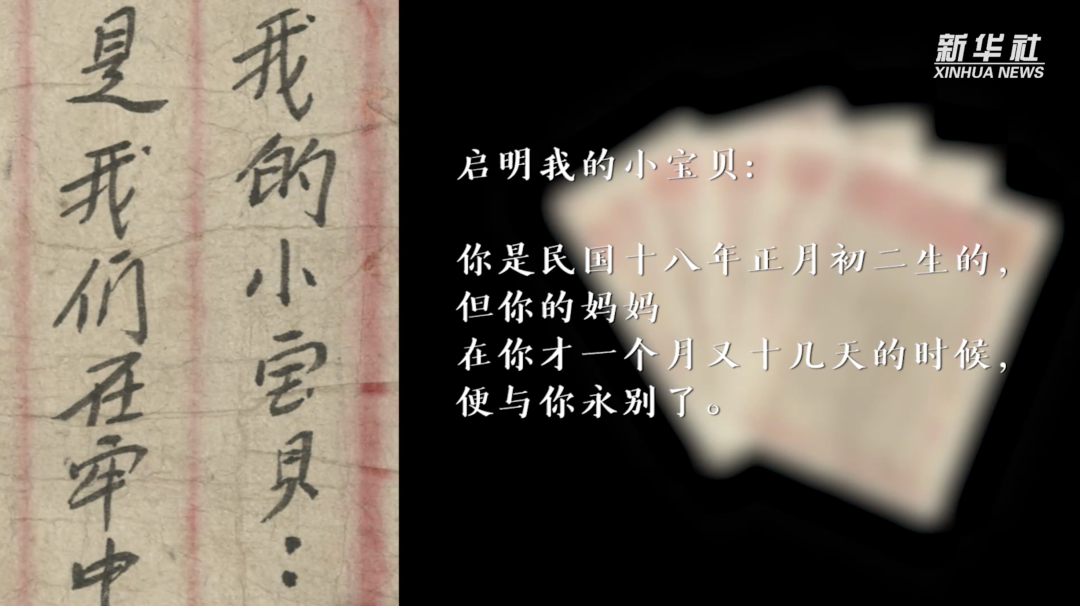 我的小宝贝：
是我们在牢中
新华社
XINHUA NEWS
启明我的小宝贝：
你是民国十八年正月初二生的，
但你的妈妈
在你才一个月又十几天的时候，
便与你永别了。